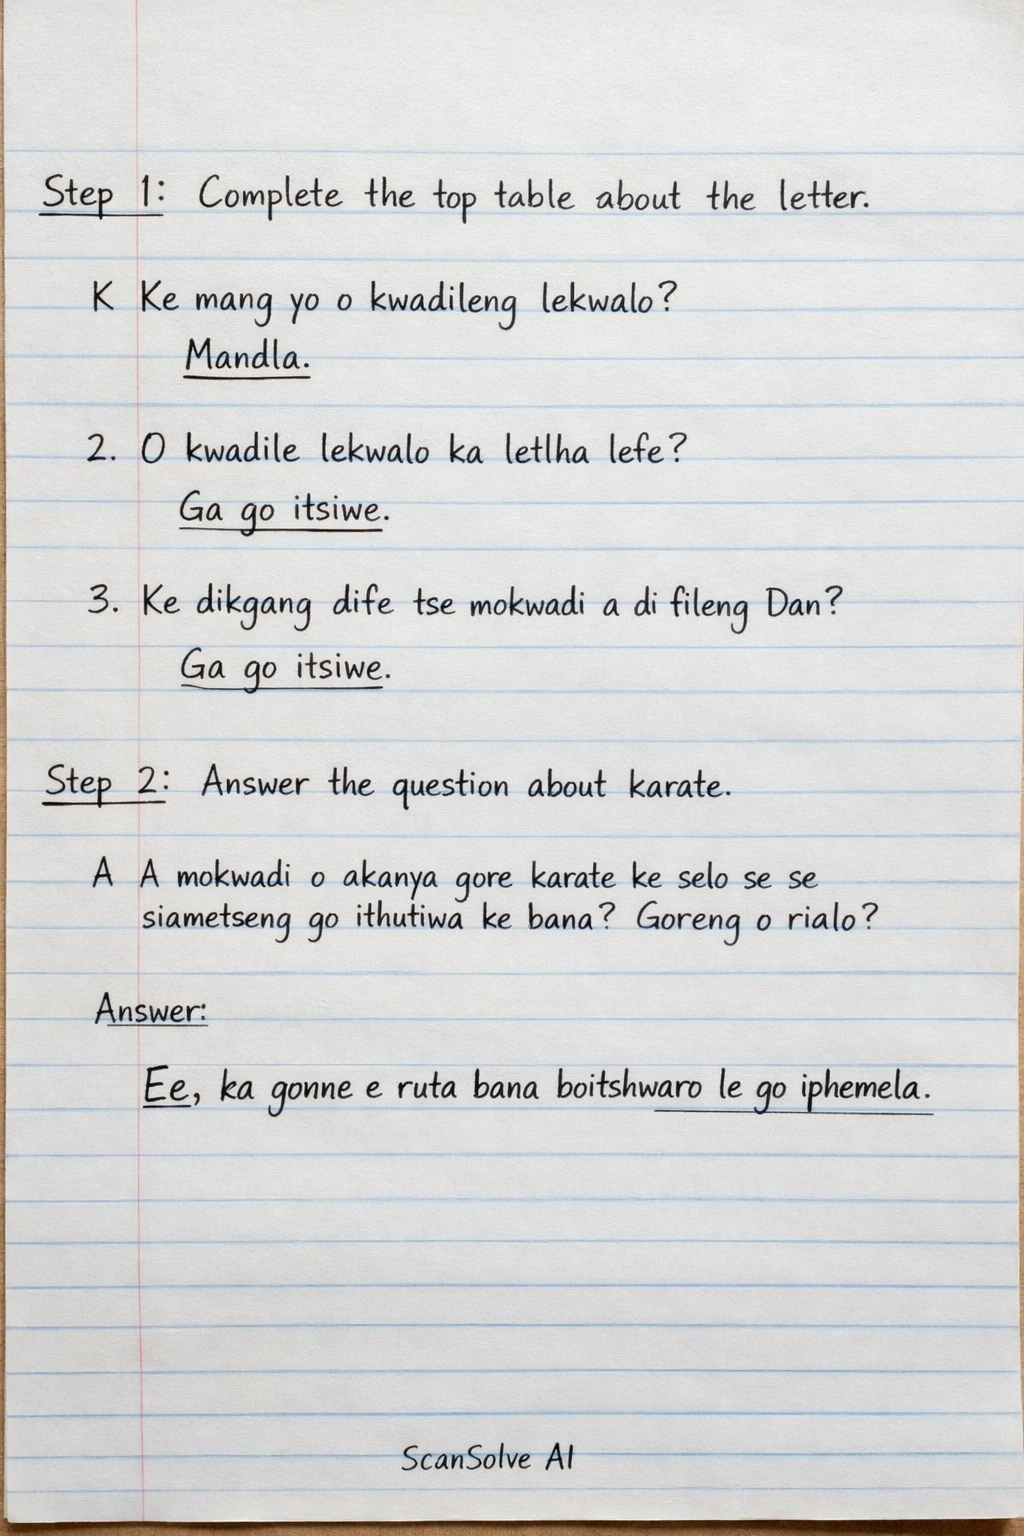 Step 1: Complete the top table about the letter.
K Ke mang yo o kwadileng lekwalo?
Mandla.
2. O kwadile lekwalo ka letlha lefe?
Ga go itsiwe.
3. Ke dikgang dife tse mokwadi a di fileng Dan?
Ga go itsiwe.
Step 2: Answer the question about karate.
A A mokwadi o akanya gore karate ke selo se se
siametseng go ithutiwa ke bana? Goreng o rialo?
Answer:
Ee, ka gonne e ruta bana boitshwaro le go iphemela.
ScanSolve AI